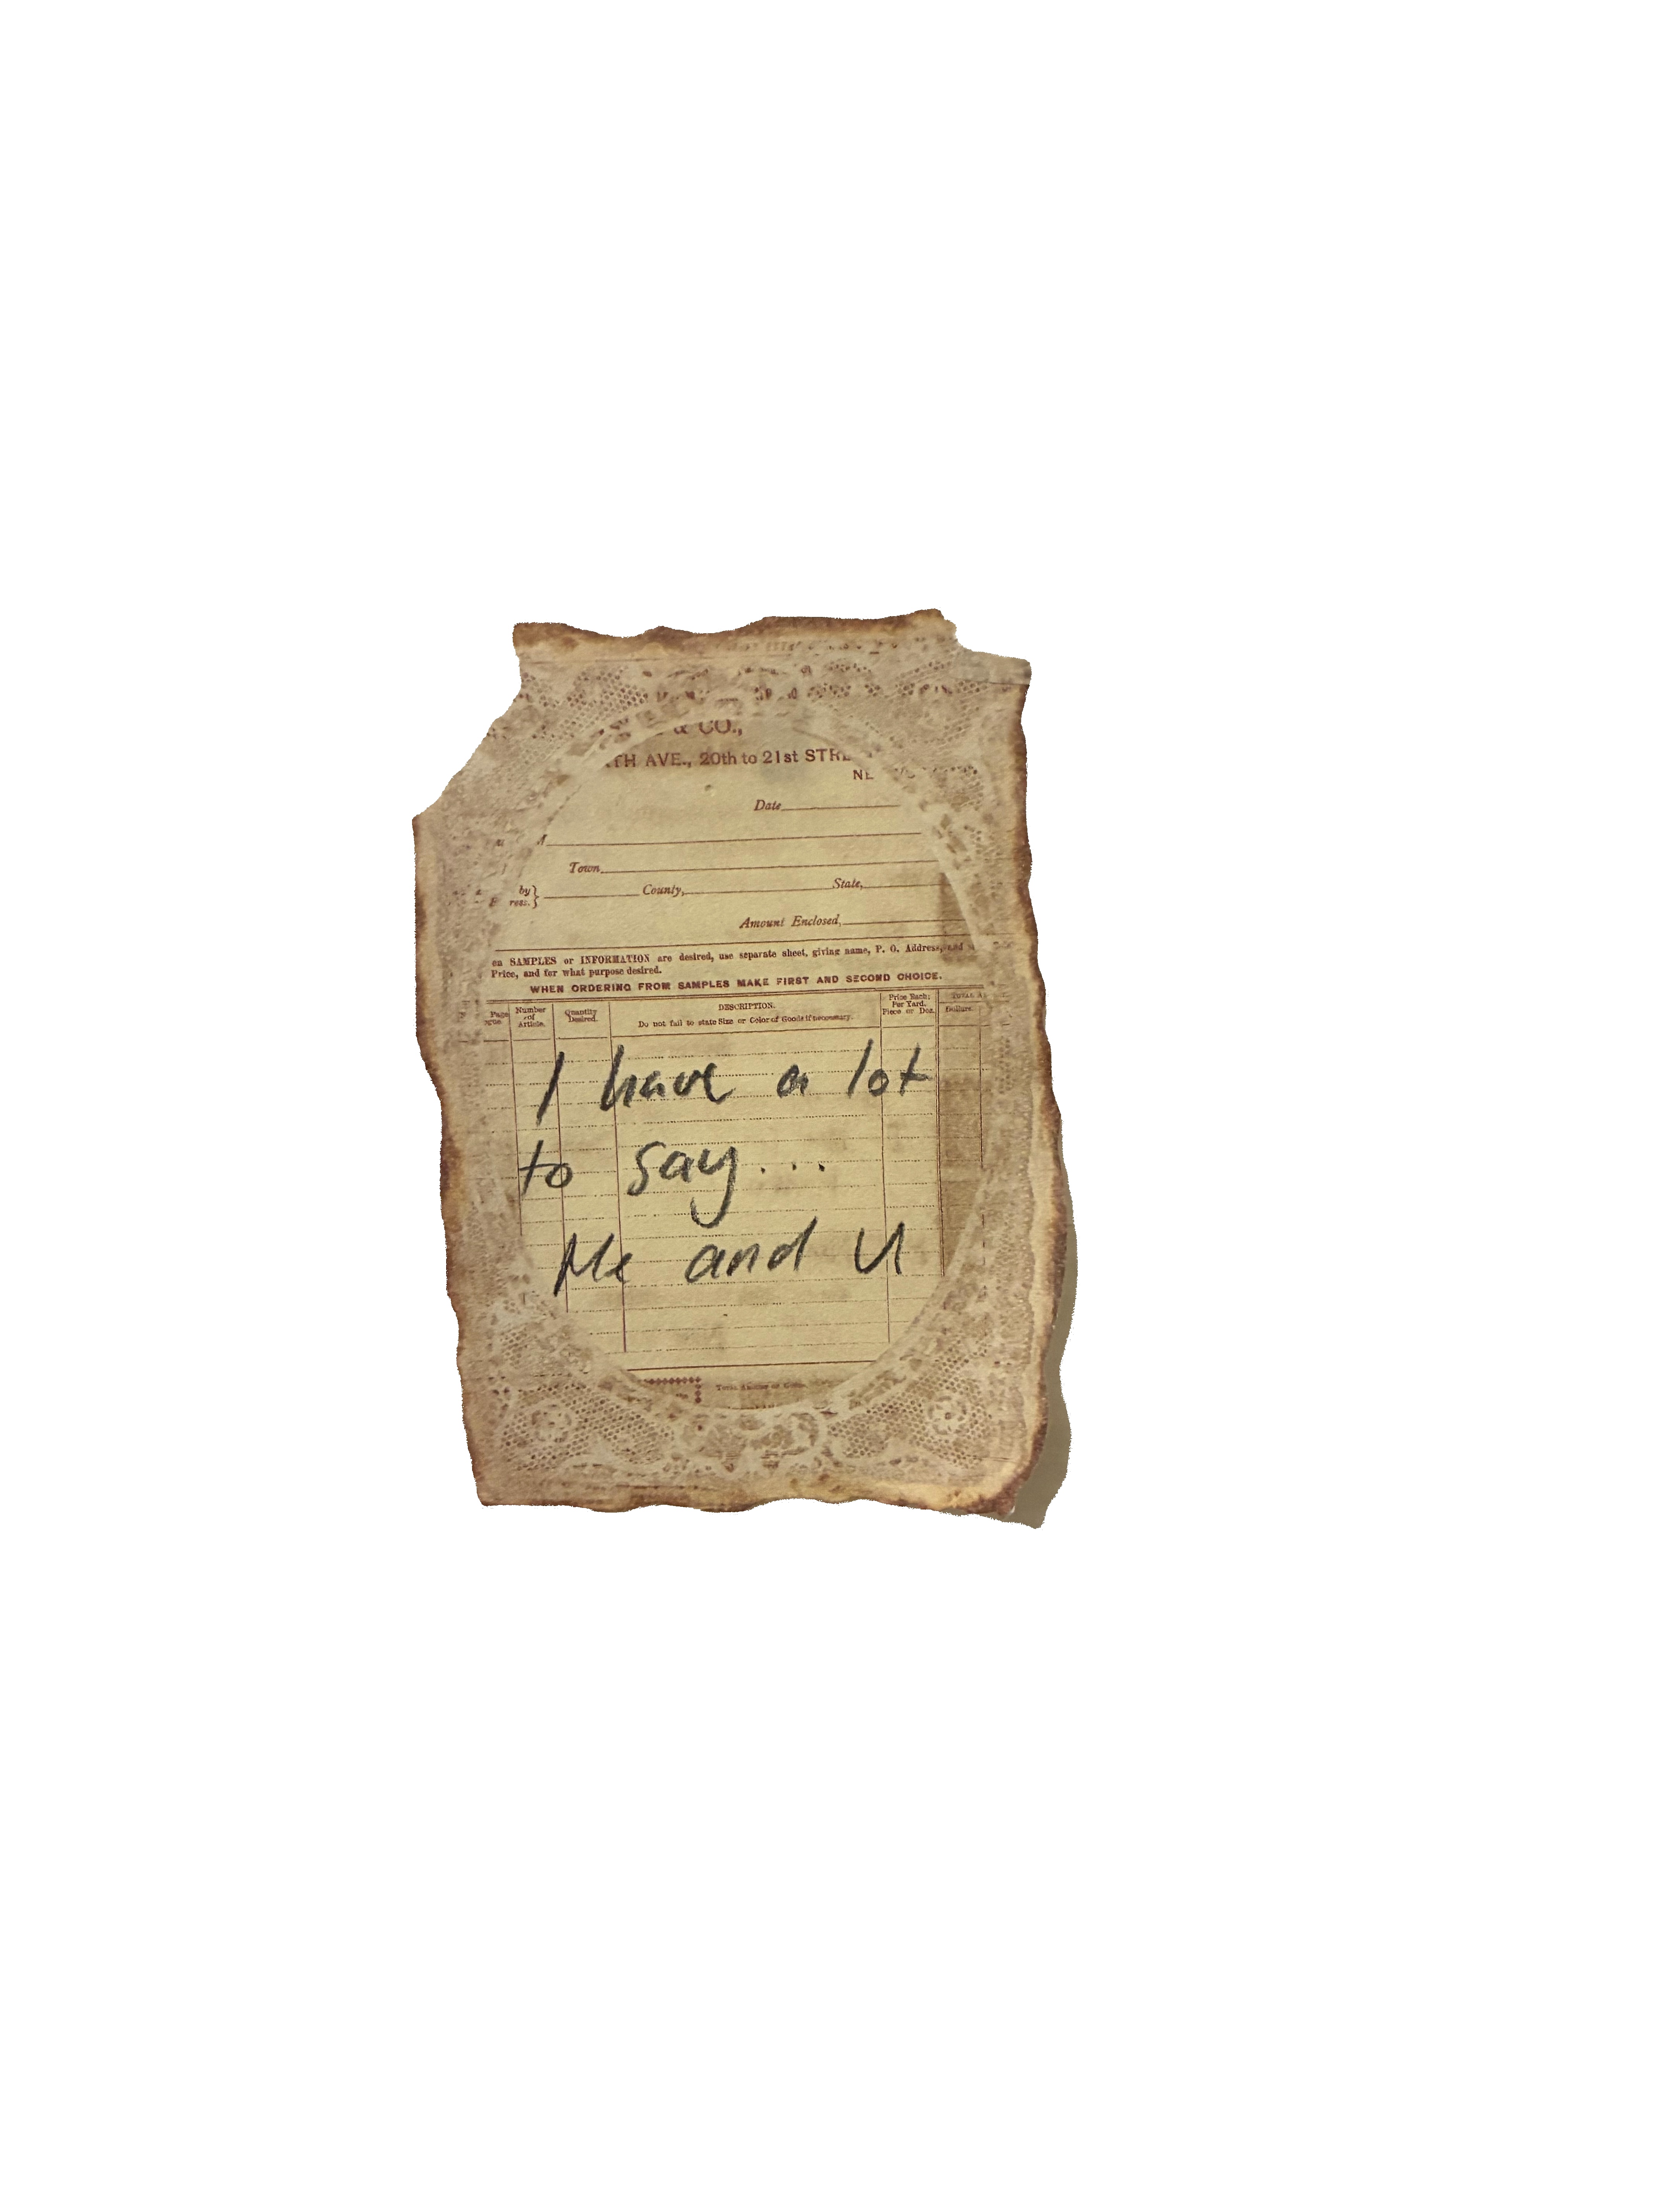 & CO.,
TH AVE., 20th to 21st
Date
Town
by
County,
State,
Amount Enclosed,
en SAMPLES or INFORMATION are desired, use separate sheet, giving name, P. O. Address, and
Price, and for what purpose desired.
WHEN ORDERING FROM SAMPLES MAKE FIRST AND SECOND CHOICE.
Page
Number of Article.
Quantity Desired.
DESCRIPTION.
Do not fail to state Size or Color of Goods if necessary.
Price Each; Per Yard. Piece or Doz.
TOTAL
Dollars.
I have a lot
to say...
Me and U